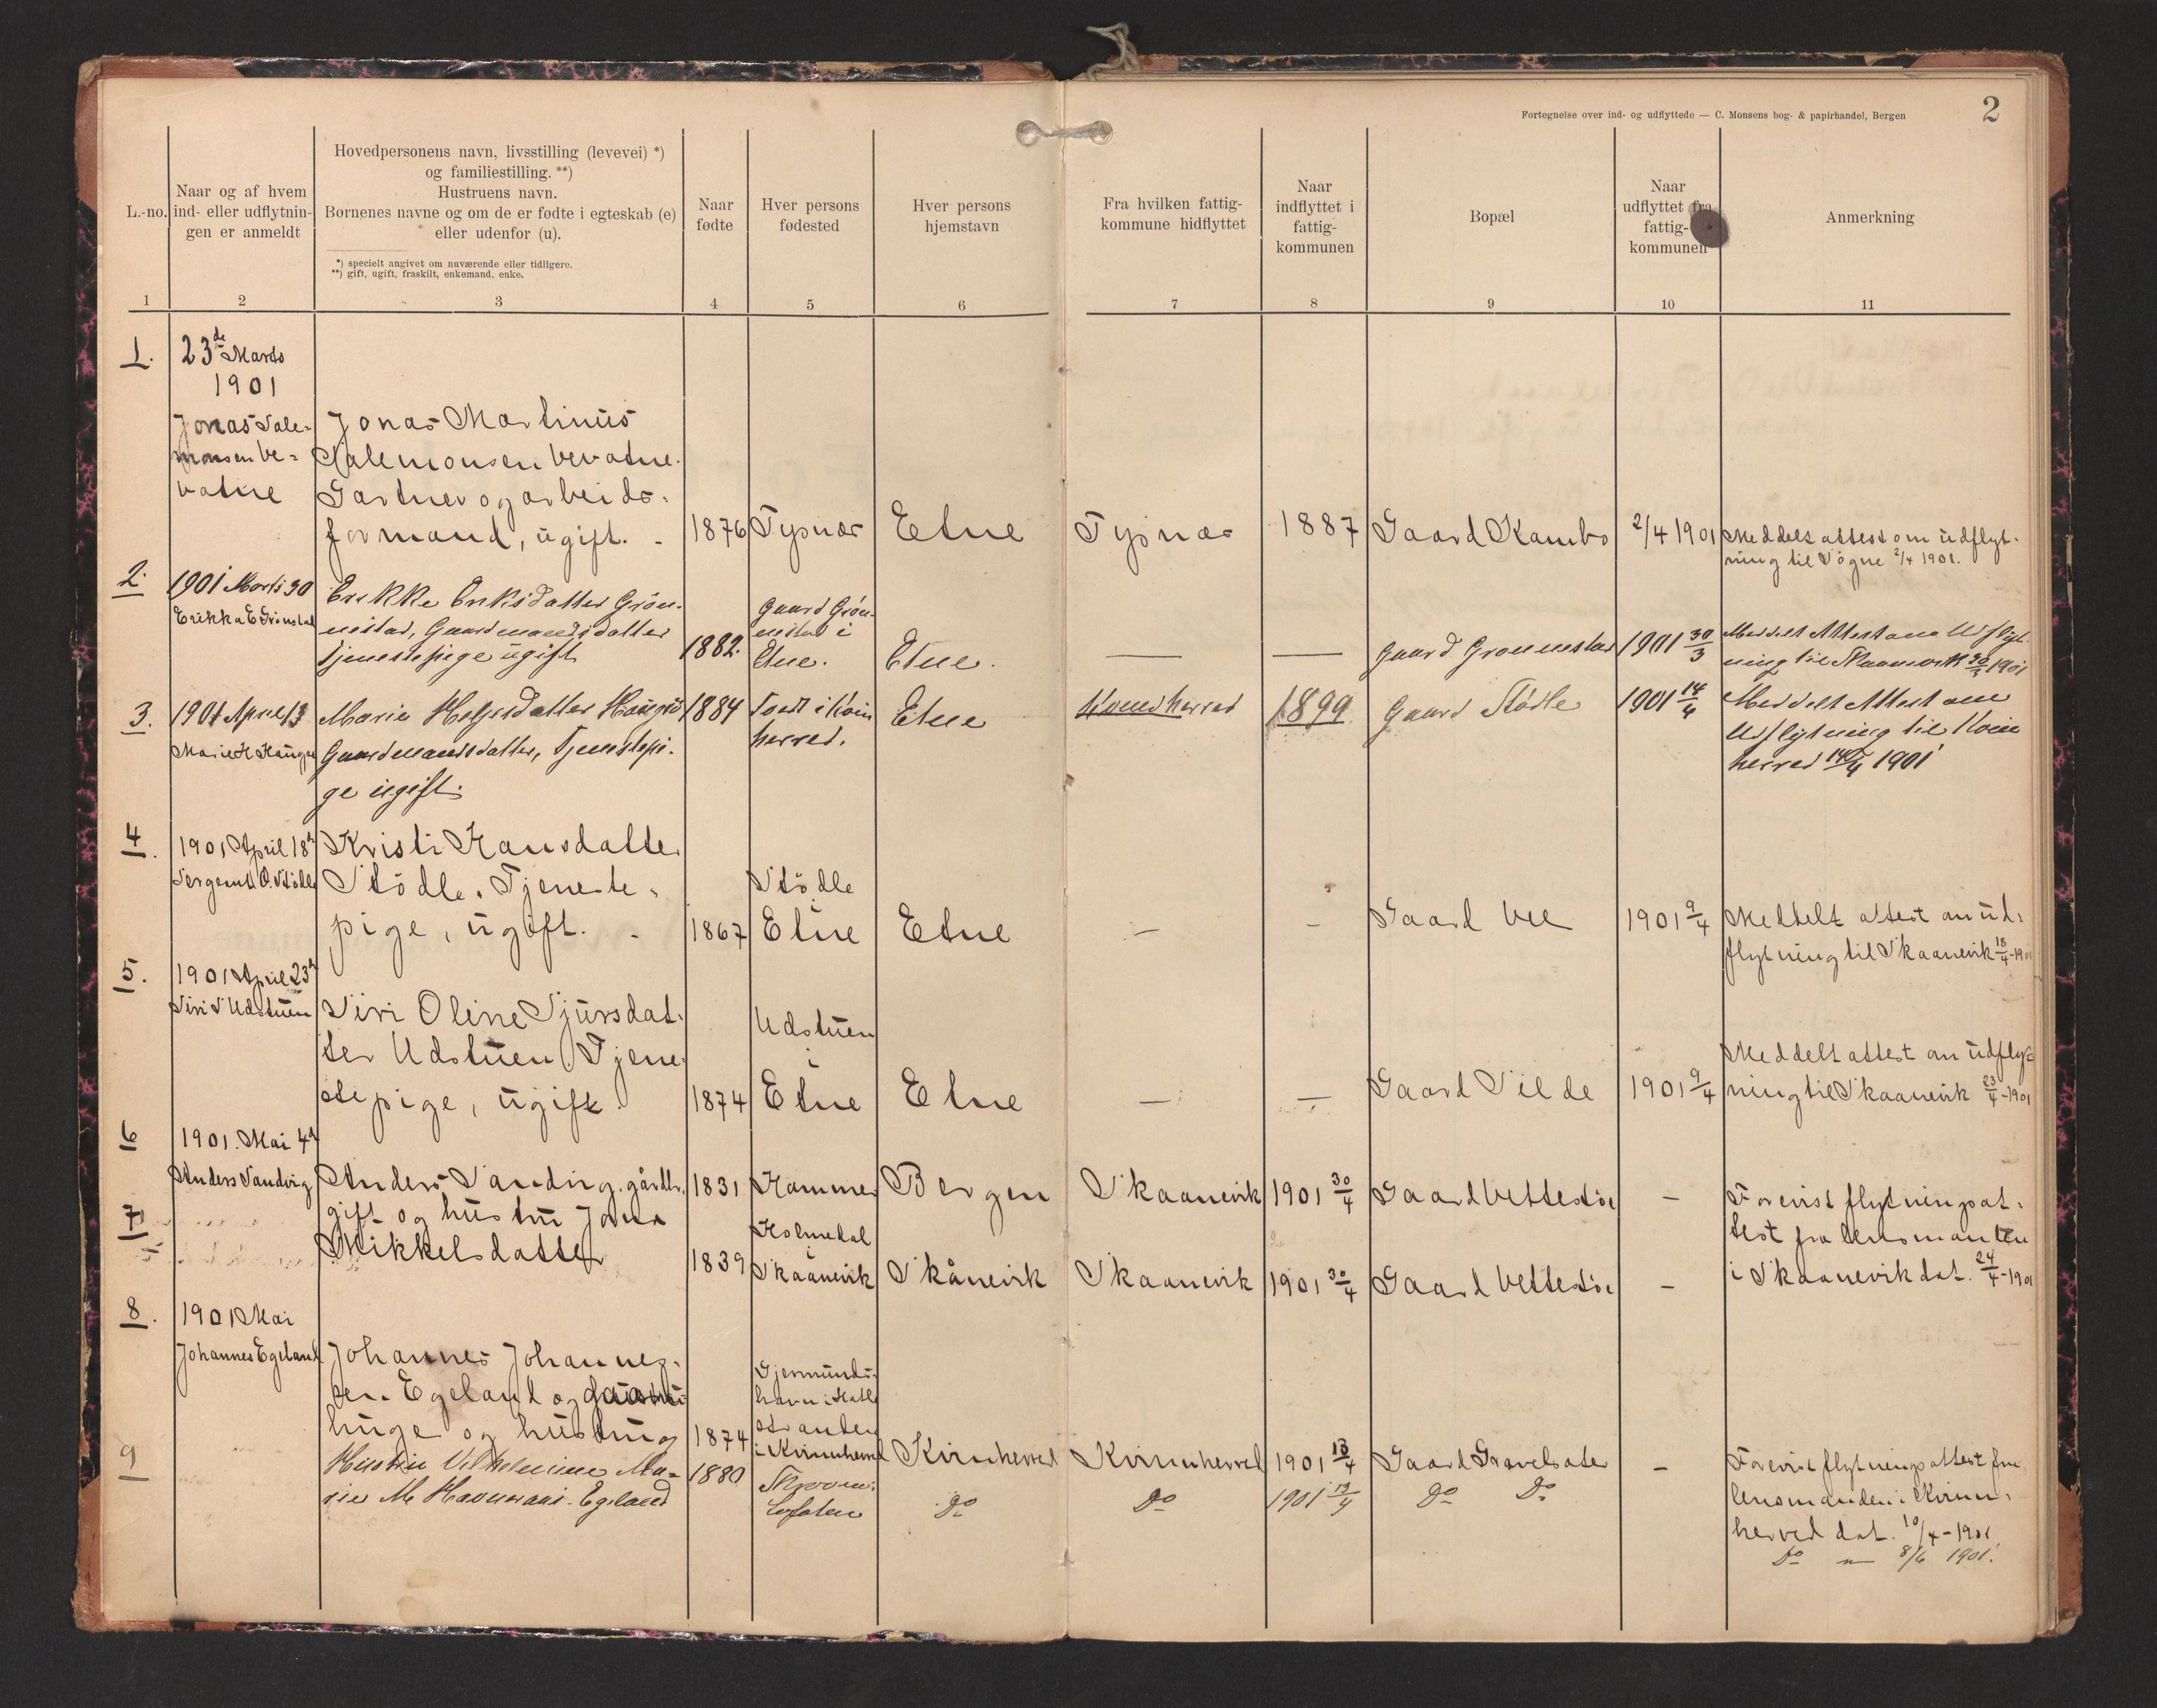 Fortegnelse over ind- og udflyttede — C. Monsens bog- & papirhandel, Bergen
2
L.-no.
Naar og af hvem
ind- eller udflytnin-
gen er anmeldt
Hovedpersonens navn, livsstilling (levevei) *)
og familiestilling. **)
Hustruens navn.
Børnenes navne og om de er fødte i egteskab (e)
eller udenfor (u).
*) specielt angivet om nuværende eller tidligere.
**) gift, ugift, fraskilt, enkemand, enke.
Naar
fødte
Hver persons
fødested
Hver persons
hjemstavn
Fra hvilken fattig-
kommune hidflyttet
Naar
indflyttet i
fattig-
kommunen
Bopæl
Naar
udflyttet fra
fattig-
kommunen
Anmerkning
1 2 3 4 5 6 7 8 9 10 11
1.
23de Marts
1901
Jonas Sale-
monsen Ve-
vatne
Jonas Martinus
Salemonsen Vevatne.
Gartner og arbeids-
formand, ugift. -
1876
Tysnæs
Etne
Tysnæs
1887
Gaard Kambo
2/4 1901
Meddelt attest om udflyt-
ning til Søgne 2/4 1901.
2.
1901 Marts 30
Erikka E Grønstad
Erikke Eriksdatter Grøn-
nestad, Gaardmandsdatter
tjenestepige ugift
1882.
Gaard Grøn-
nestad i
Etne.
Etne.
—
—
Gaard Grønnestad
1901 30/3
Meddelt Attest om Udflyt-
ning til Skaanevik 30/3 1901
3.
1901 April 13
Marie H Hauge
Marie Helgesdatter Hauge
Gaardmandsdatter, Tjenestepi-
ge ugift.
1884
Født i Kvin
herred.
Etne
Kvindherred
1899
Gaard Stødle
1901 14/4
Meddelt Attest om
Udflytning til Kvin
herred 14/4 1901
4.
1901 April 18d
Sergeant O. Stødle
Kristi Hansdatter
Stødle. Tjeneste-
pige, ugift. -
1867
Stødle
i
Etne
Etne
—
—
Gaard Vee
1901 9/4
Meddelt attest om ud-
flytning til Skaanevik 18/4-1901
5.
1901 April 23d
Siri S Udstuen
Siri Oline Sjursdat-
ter Udstuen Tjene-
stepige, ugift.
1874
Udstuen
i
Etne
Etne
—
—
Gaard Silde
1901 9/4
Meddelt attest om udflyt-
ning til Skaanevik 23/4-1901
6
1901. Mai 4d
Anders Sandvig
Anders Sandvig. gårdbr.
gift og hustru Jona
1831
Hammer
Bergen
Skaanevik
1901 30/4
Gaard Vettestøe
—
Forevist flytningsat-
test fra lensmanden
i Skaanevik dat. 24/4-1901
7
Mikkelsdatter
1839
Holmedal
Skaanevik
Skånevik
Skaanevik
1901 30/4
Gaard Vettestøe
—
8.
1901 Mai
Johannes Egeland
Johannes Johannes-
sen Egeland og
og hustru
1874
Gjermunds-
havn i Hatle
stranden
i Kvinnherred
Kvinnherred
Kvinnherred
1901 13/4
Gaard Gravelsæter
—
Forevist flytningsattest fra
lensmanden i Kvinn-
herred dat. 10/4-1901
9
Hustru Vilhelmine Ma-
rie M. Havnevani. Egeland
1880
Lofoten
Do
Do
1901 13/4
Do Do
Do — 8/6 1901.